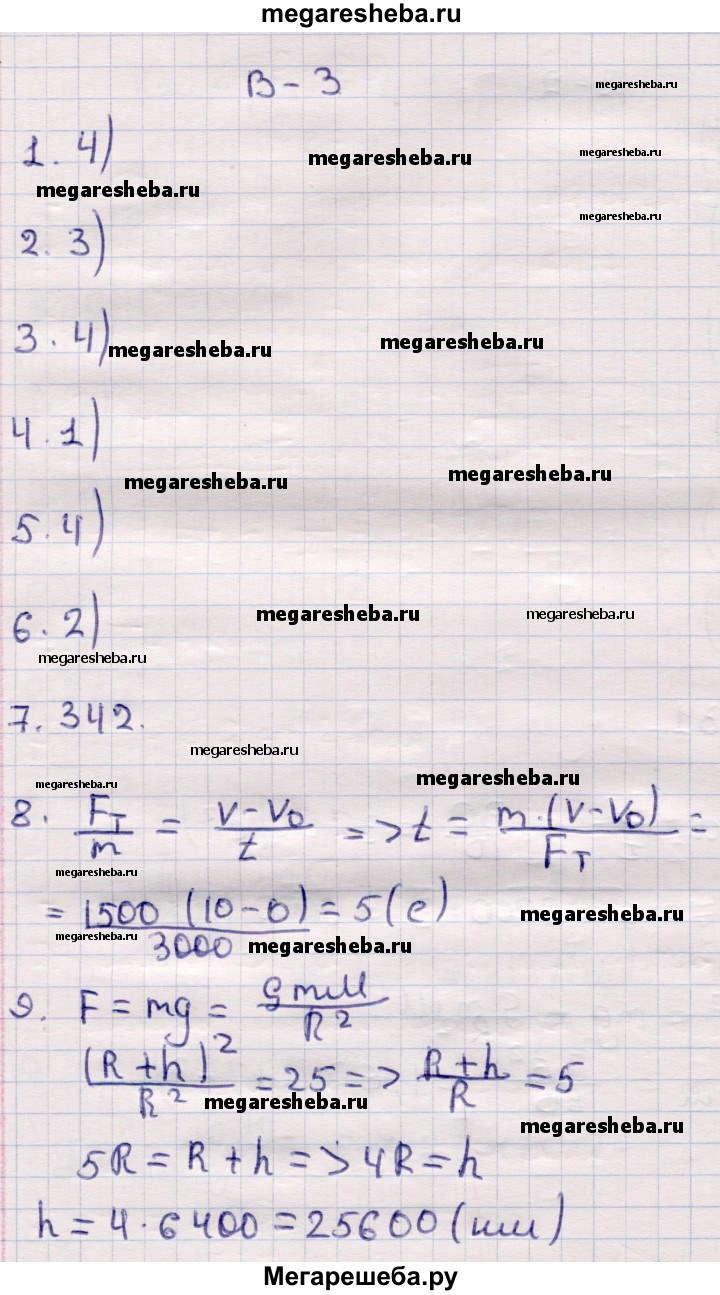 megaresheba.ru
В-3
megaresheba.ru
1. 4)
megaresheba.ru
megaresheba.ru
megaresheba.ru
megaresheba.ru
2. 3)
3. 4)
megaresheba.ru
megaresheba.ru
4. 1)
megaresheba.ru
megaresheba.ru
5. 4)
6. 2)
megaresheba.ru
megaresheba.ru
megaresheba.ru
7. 342.
megaresheba.ru
megaresheba.ru
megaresheba.ru
8. F_T/m = (v-v_0)/t => t = m·(v-v_0)/F_T =
megaresheba.ru
= 1500 (10-0)/3000 = 5 (с)
megaresheba.ru
megaresheba.ru
megaresheba.ru
9. F = mg = GmM/R^2
(R+h)^2/R^2 = 25 => (R+h)/R = 5
megaresheba.ru
megaresheba.ru
5R = R+h => 4R = h
h = 4·6400 = 25600 (км)
Мегарешеба.ру